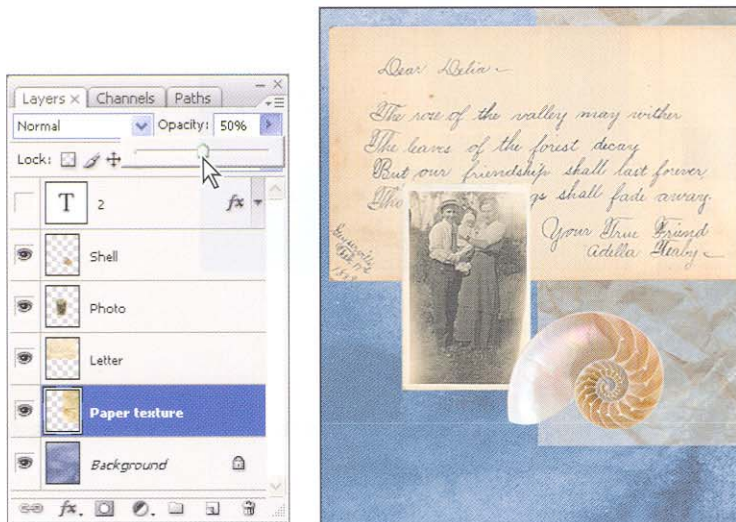 Layers × Channels Paths
Normal Opacity: 50%
Lock:
T 2 fx
Shell
Photo
Letter
Paper texture
Background
fx.
Dear Delia
The rose of the valley may wither
The leaves of the forest decay
But our friendship shall last forever
gs shall fade away.
Your True Friend
Adella